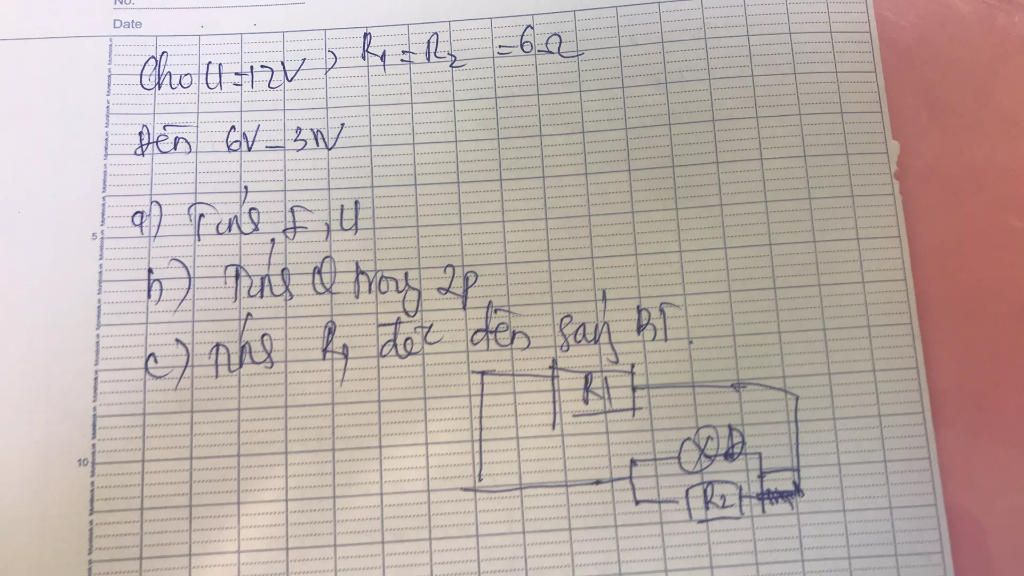 No.
Date
Cho U=12V, R1 = R2 = 6Ω
Đèn 6V - 3W
a) Tính I, U
b) Tính Q trong 2p
c) Tính R1 để đèn sáng BT.
R1
Đ
R2
5
10